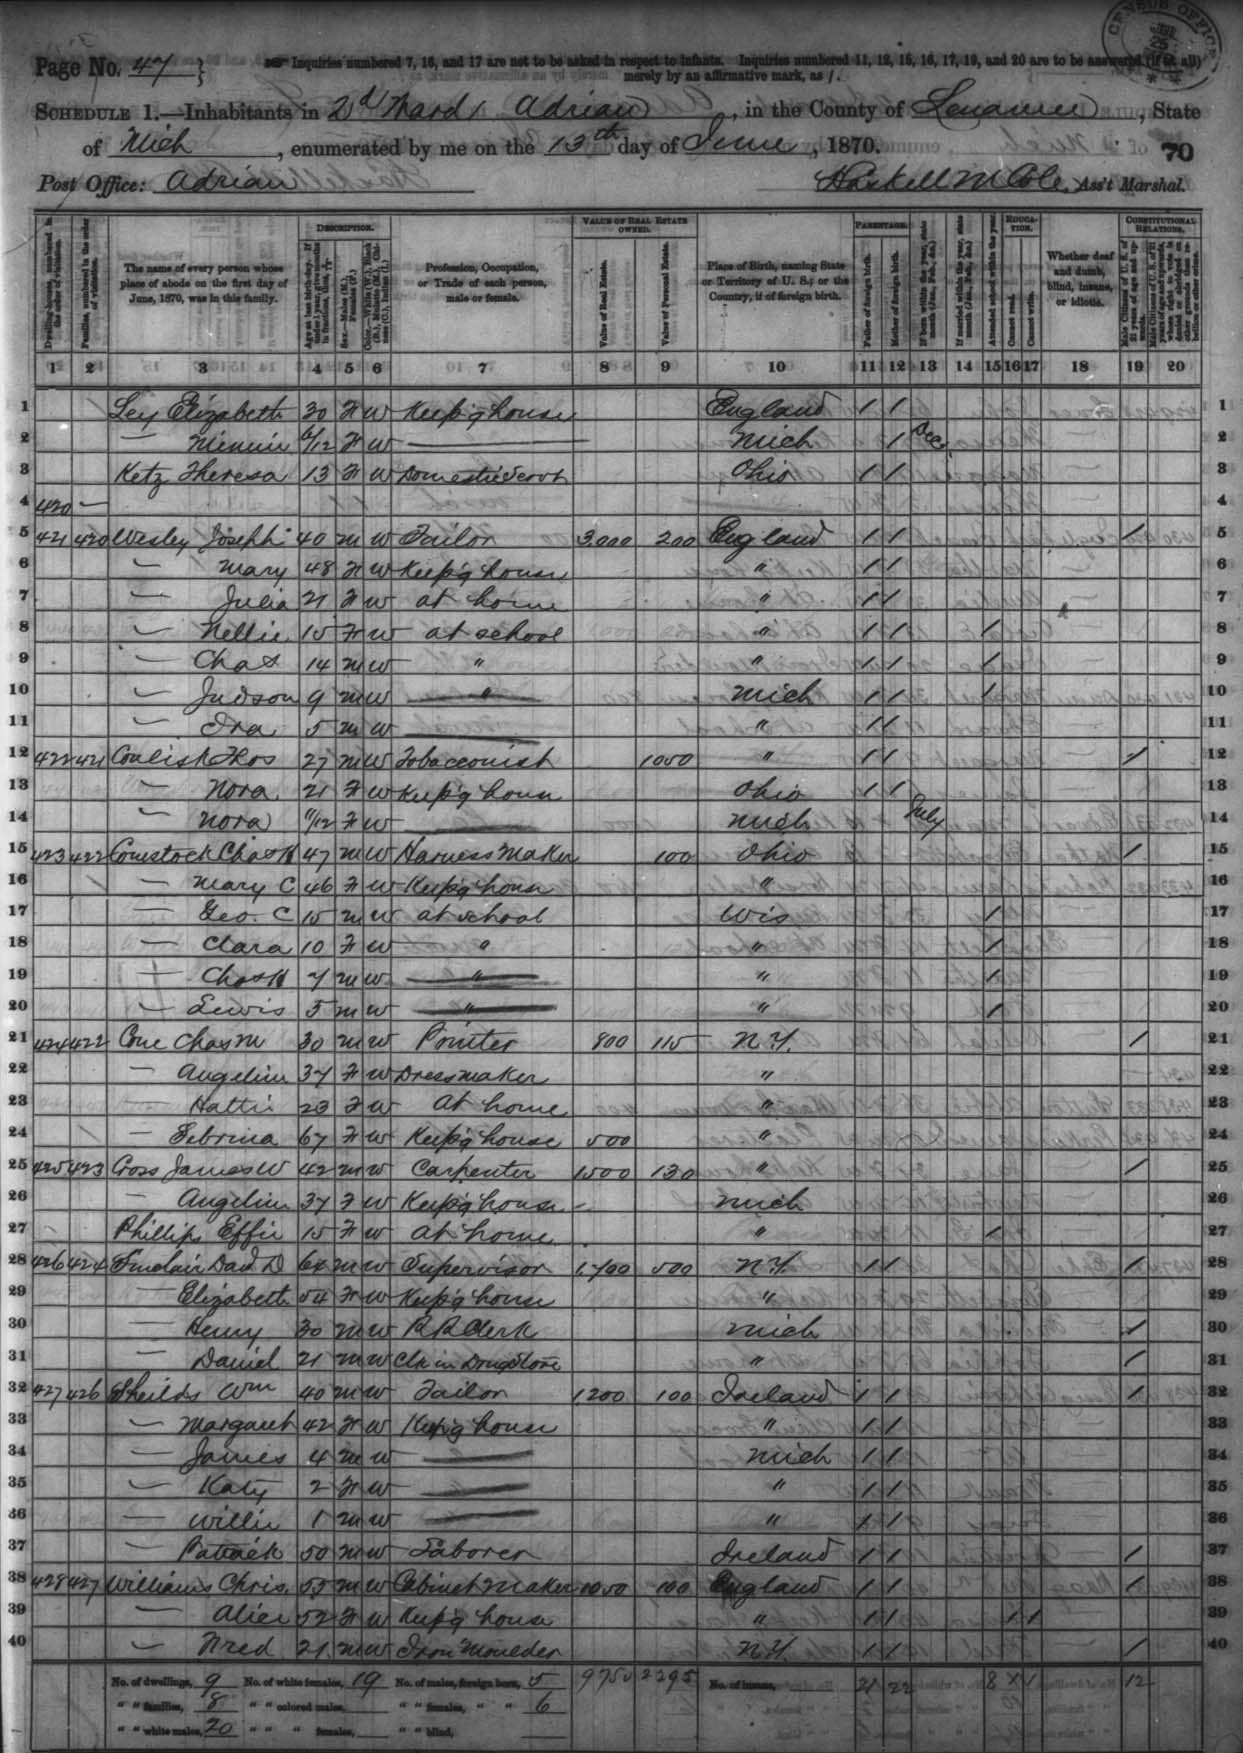 Page No. 47 } Inquiries numbered 7, 16, and 17 are not to be asked in respect to infants. Inquiries numbered 11, 12, 15, 16, 17, 19, and 20 are to be answered (if at all)
merely by an affirmative mark, as /.
CENSUS OFFICE
SCHEDULE 1.—Inhabitants in 2d Ward, Adrian, in the County of Lenawee, State
of Mich, enumerated by me on the 13th day of June, 1870.
70
Post Office: Adrian Haskell M Cole, Ass't Marshal.
DESCRIPTION. VALUE OF REAL ESTATE OWNED. PARENTAGE. EDUCATION. CONSTITUTIONAL RELATIONS.
Dwelling-houses, numbered in the order of visitation.
Families, numbered in the order of visitation.
The name of every person whose place of abode on the first day of June, 1870, was in this family.
Age at last birth-day. If under 1 year, give months in fractions, thus, 3/12
Sex.—Males (M.), Females (F.)
Color.—White (W.), Black (B.), Mulatto (M.), Chinese (C.), Indian (I.)
Profession, Occupation, or Trade of each person, male or female.
Value of Real Estate.
Value of Personal Estate.
Place of Birth, naming State or Territory of U. S.; or the Country, if of foreign birth.
Father of foreign birth.
Mother of foreign birth.
If born within the year, state month (Jan., Feb., &c.)
If married within the year, state month (Jan., Feb., &c.)
Attended school within the year.
Cannot read.
Cannot write.
Whether deaf and dumb, blind, insane, or idiotic.
Male Citizens of U. S. of 21 years of age and upwards.
Male Citizens of U. S. of 21 years of age and upwards, whose right to vote is denied or abridged on other grounds than rebellion or other crime.
1 2 3 4 5 6 7 8 9 10 11 12 13 14 15 16 17 18 19 20
1 Ley Elizabeth 30 F W Keep'g house England / / 1
2 — Minnie 6/12 F W — Mich / Dec 2
3 Ketz Theresa 13 F W Domestic Servt Ohio / / 3
4 420 — 4
5 421 420 Wesley Joseph 40 M W Tailor 3000 200 England / / / 5
6 — Mary 48 F W Keep'g house " / / 6
7 — Julia 21 F W at home " / / 7
8 — Nellie 15 F W at school " / / / 8
9 — Chas 14 M W " " / / / 9
10 — Judson 9 M W " Mich / / / 10
11 — Ira 5 M W — " / / 11
12 422 421 Conlisk Thos 27 M W Tobacconist 1050 " / / / 12
13 — Nora 21 F W Keep'g house Ohio / / 13
14 — Nora 11/12 F W — Mich July 14
15 423 422 Comstock Chas H 47 M W Harness Maker 100 Ohio / 15
16 — Mary C 46 F W Keep'g house " 16
17 — Geo. C 15 M W at school Wis / 17
18 — Clara 10 F W " " / 18
19 — Chas H 7 M W " " / 19
20 — Lewis 5 M W " " / 20
21 424 422 Cone Chas M 30 M W Painter 800 115 N.Y. / 21
22 — Angeline 37 F W Dressmaker " 22
23 — Hattie 23 F W At home " 23
24 — Sebrina 67 F W Keep'g house 500 " 24
25 425 423 Cross James W 42 M W Carpenter 1500 130 " / 25
26 — Angeline 37 F W Keep'g house Mich 26
27 Phillips Effie 15 F W at home " / 27
28 426 424 Sinclair Danl D 64 M W Supervisor 1,700 500 N.Y. / / / 28
29 — Elizabeth 54 F W Keep'g house " 29
30 — Henry 30 M W R R Clerk Mich / 30
31 — Daniel 21 M W Clk in Drug Store " / 31
32 427 426 Sheilds Wm 40 M W Tailor 1,200 100 Ireland / / / 32
33 — Margaret 42 F W Keep'g house " / / 33
34 — James 4 M W — Mich / / 34
35 — Katy 2 F W — " / / 35
36 — Willie 1 M W — " / / 36
37 — Patrick 50 M W Laborer Ireland / / / 37
38 428 427 Williams Chris. 55 M W Cabinet Maker 1050 100 England / / / 38
39 — Alice 52 F W Keep'g house " / / / / 39
40 — Fred 21 M W Iron Moulder N.Y. / / / 40
No. of dwellings, 9 No. of white females, 19 No. of males, foreign born, 5 9750 2295 No. of insane, 21 22 8 X 1 12
" " families, 8 " " colored males, " " females, " " 6
" " white males, 20 " " " females, " " blind,